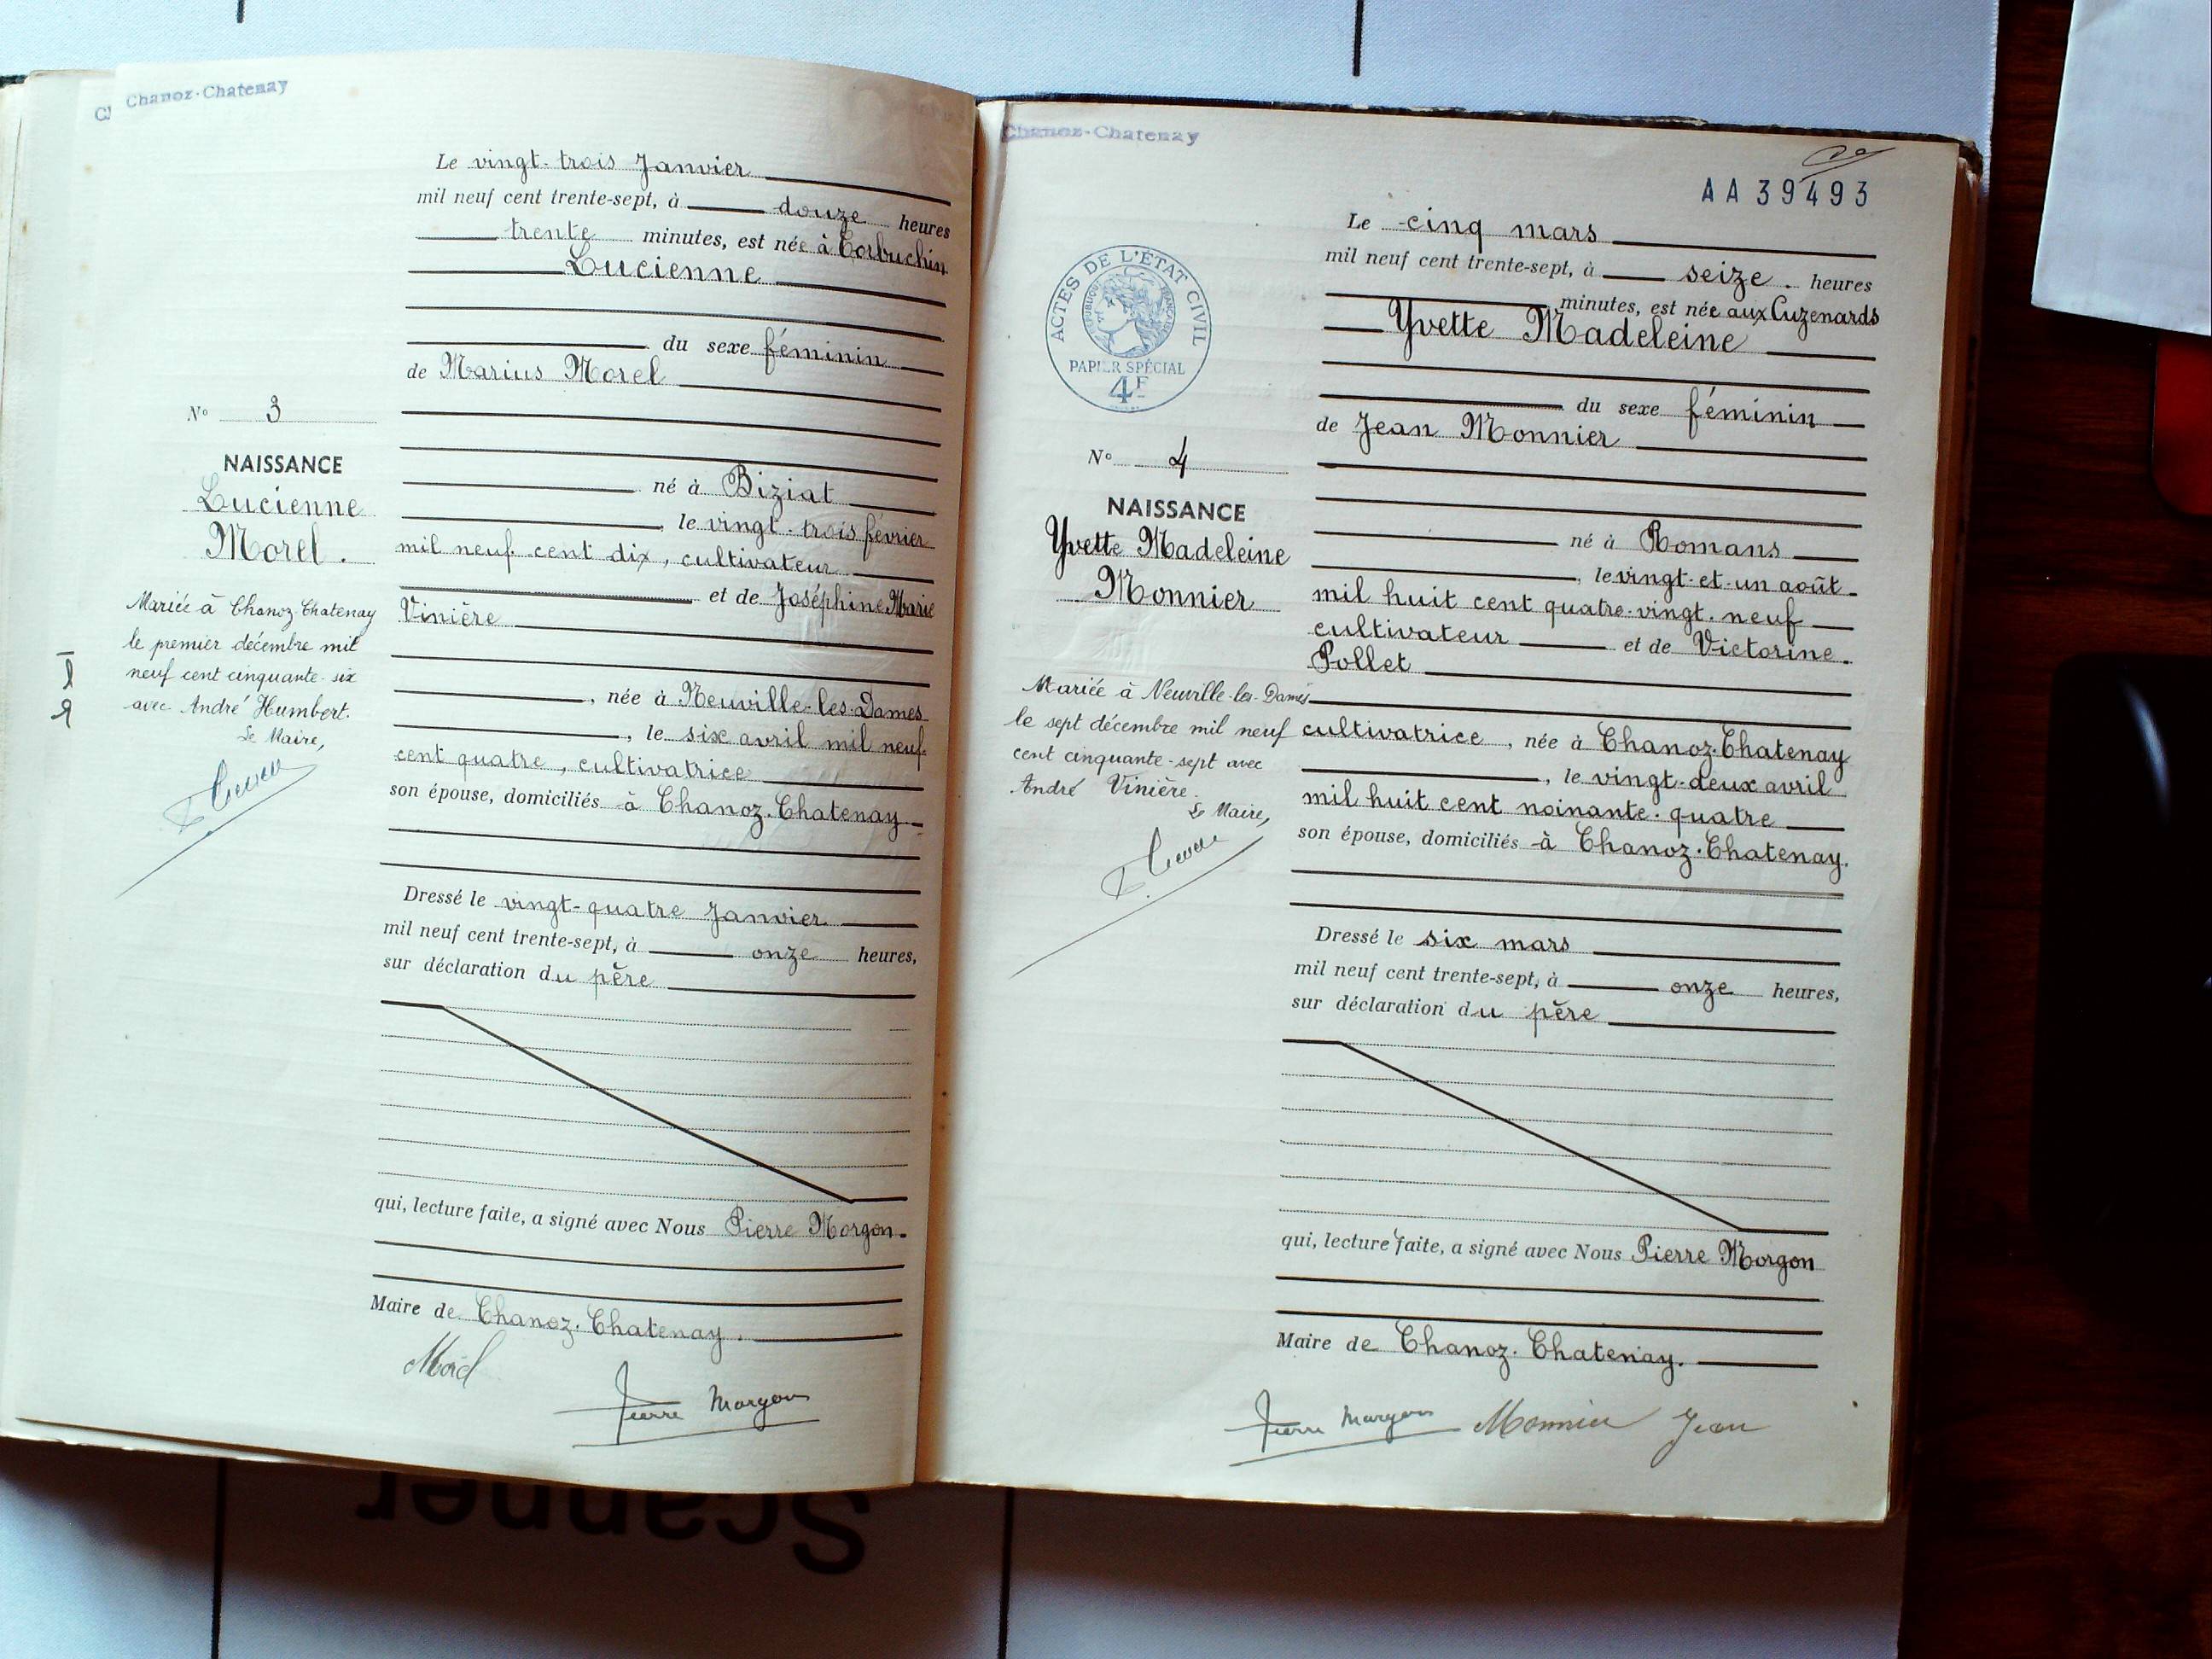 Chanoz-Chatenay
Le vingt-trois Janvier
mil neuf cent trente-sept, à douze heures
trente minutes, est née à Corbuchin
Lucienne
du sexe féminin
de Marius Morel
né à Biziat
, le vingt-trois février
mil neuf cent dix, cultivateur
et de Joséphine Marie
Vinière
, née à Neuville-les-Dames
, le six avril mil neuf
cent quatre, cultivatrice
son épouse, domiciliés à Chanoz-Chatenay
Dressé le vingt-quatre Janvier
mil neuf cent trente-sept, à onze heures,
sur déclaration du père
qui, lecture faite, a signé avec Nous Pierre Morgon
Maire de Chanoz-Chatenay.
Morel
Pierre Morgon
N° 3
NAISSANCE
Lucienne
Morel.
Mariée à Chanoz-Chatenay
le premier décembre mil
neuf cent cinquante-six
avec André Humbert.
Le Maire,
Chanoz-Chatenay
AA39493
ACTES DE L'ÉTAT CIVIL
RÉPUBLIQUE FRANÇAISE
PAPIER SPÉCIAL
4F
Le cinq mars
mil neuf cent trente-sept, à seize heures
minutes, est née aux Cuzenards
Yvette Madeleine
du sexe féminin
de Jean Monnier
né à Romans
, le vingt-et-un août
mil huit cent quatre-vingt-neuf
cultivateur et de Victorine
Pollet
cultivatrice, née à Chanoz-Chatenay
, le vingt-deux avril
mil huit cent noinante-quatre
son épouse, domiciliés à Chanoz-Chatenay.
Dressé le six mars
mil neuf cent trente-sept, à onze heures,
sur déclaration du père
qui, lecture faite, a signé avec Nous Pierre Morgon
Maire de Chanoz-Chatenay.
Pierre Morgon Monnier Jean
N° 4
NAISSANCE
Yvette Madeleine
Monnier
Mariée à Neuville-les-Dames
le sept décembre mil neuf
cent cinquante-sept avec
André Vinière.
Le Maire,
Scanner